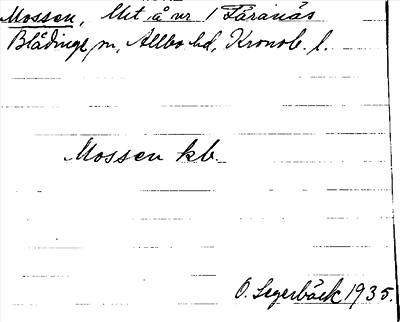 Mossen, Mt å nr 1 Taranäs
Blädinge sn, Allbo hd, Kronob. l.
Mossen kb.
O. Segerbäck 1935.